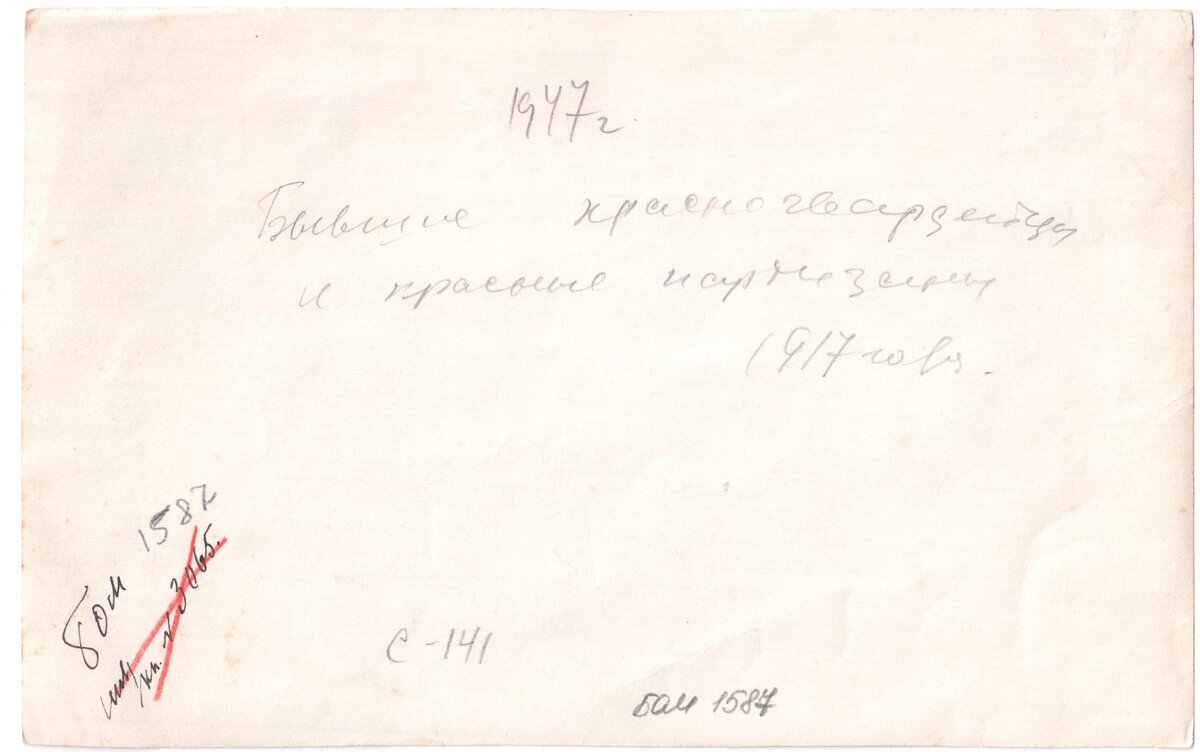 1947 г.
Бывшие красногвардейцы
и красные партизаны
1917 года.
БОМ 1587
инв
кн. № 3065.
С-141
БОМ 1587